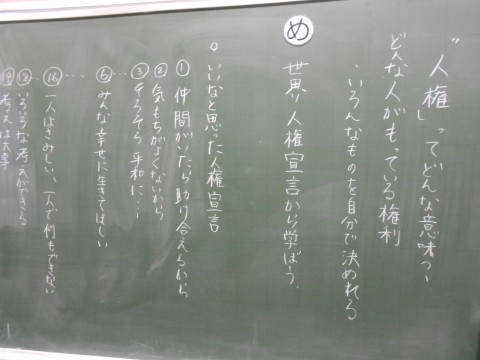 "人権"ってどんな意味?
どんな人がもっている権利
・いろんなものを自分で決めれる
め 世界人権宣言から学ぼう。
○いいなと思った人権宣言
① 仲間がいたら助け合えるから
② 気もちがよくないから
③ そろそろ平和に…
⑥ みんな幸せに生きてほしい
⑯ 一人はさみしい、一人で何もできない
⑱ いろいろな考えができる
⑲ 考えは大事